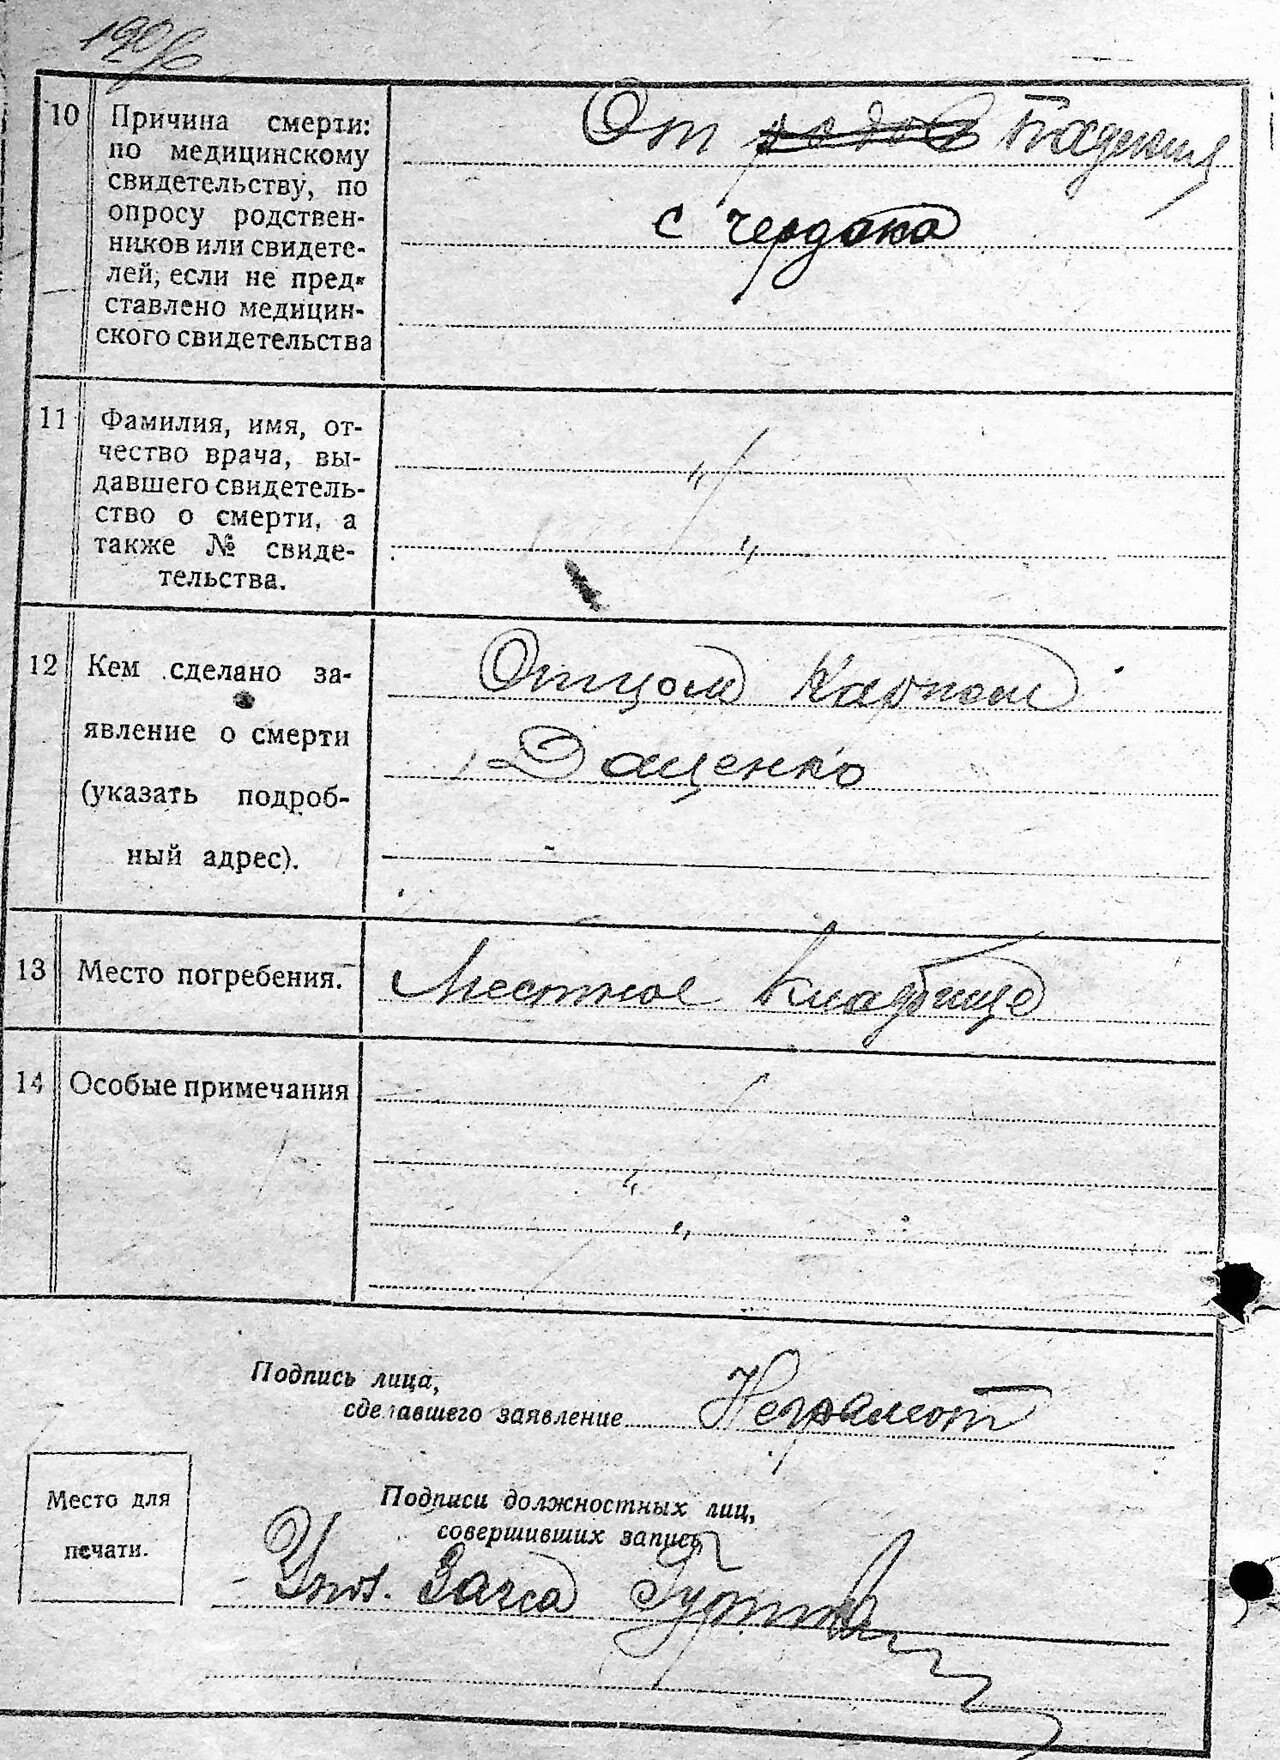 10 Причина смерти:
по медицинскому
свидетельству, по
опросу родствен-
ников или свидете-
лей, если не пред-
ставлено медицин-
ского свидетельства
От падения
с чердака
11 Фамилия, имя, от-
чество врача, вы-
давшего свидетель-
ство о смерти, а
также № свиде-
тельства.
"
"
12 Кем сделано за-
явление о смерти
(указать подроб-
ный адрес).
Отцом Карпом
Даценко
13 Место погребения. Местное кладбище
14 Особые примечания
"
"
Подпись лица,
сделавшего заявление Неграмот
Место для
печати.
Подписи должностных лиц,
совершивших запись
Загса